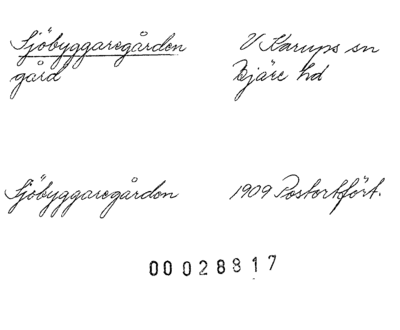 Sjöbyggaregården V Karups sn
gård Bjäre hd
Sjöbyggaregården 1909 Postortsfört.
00028817